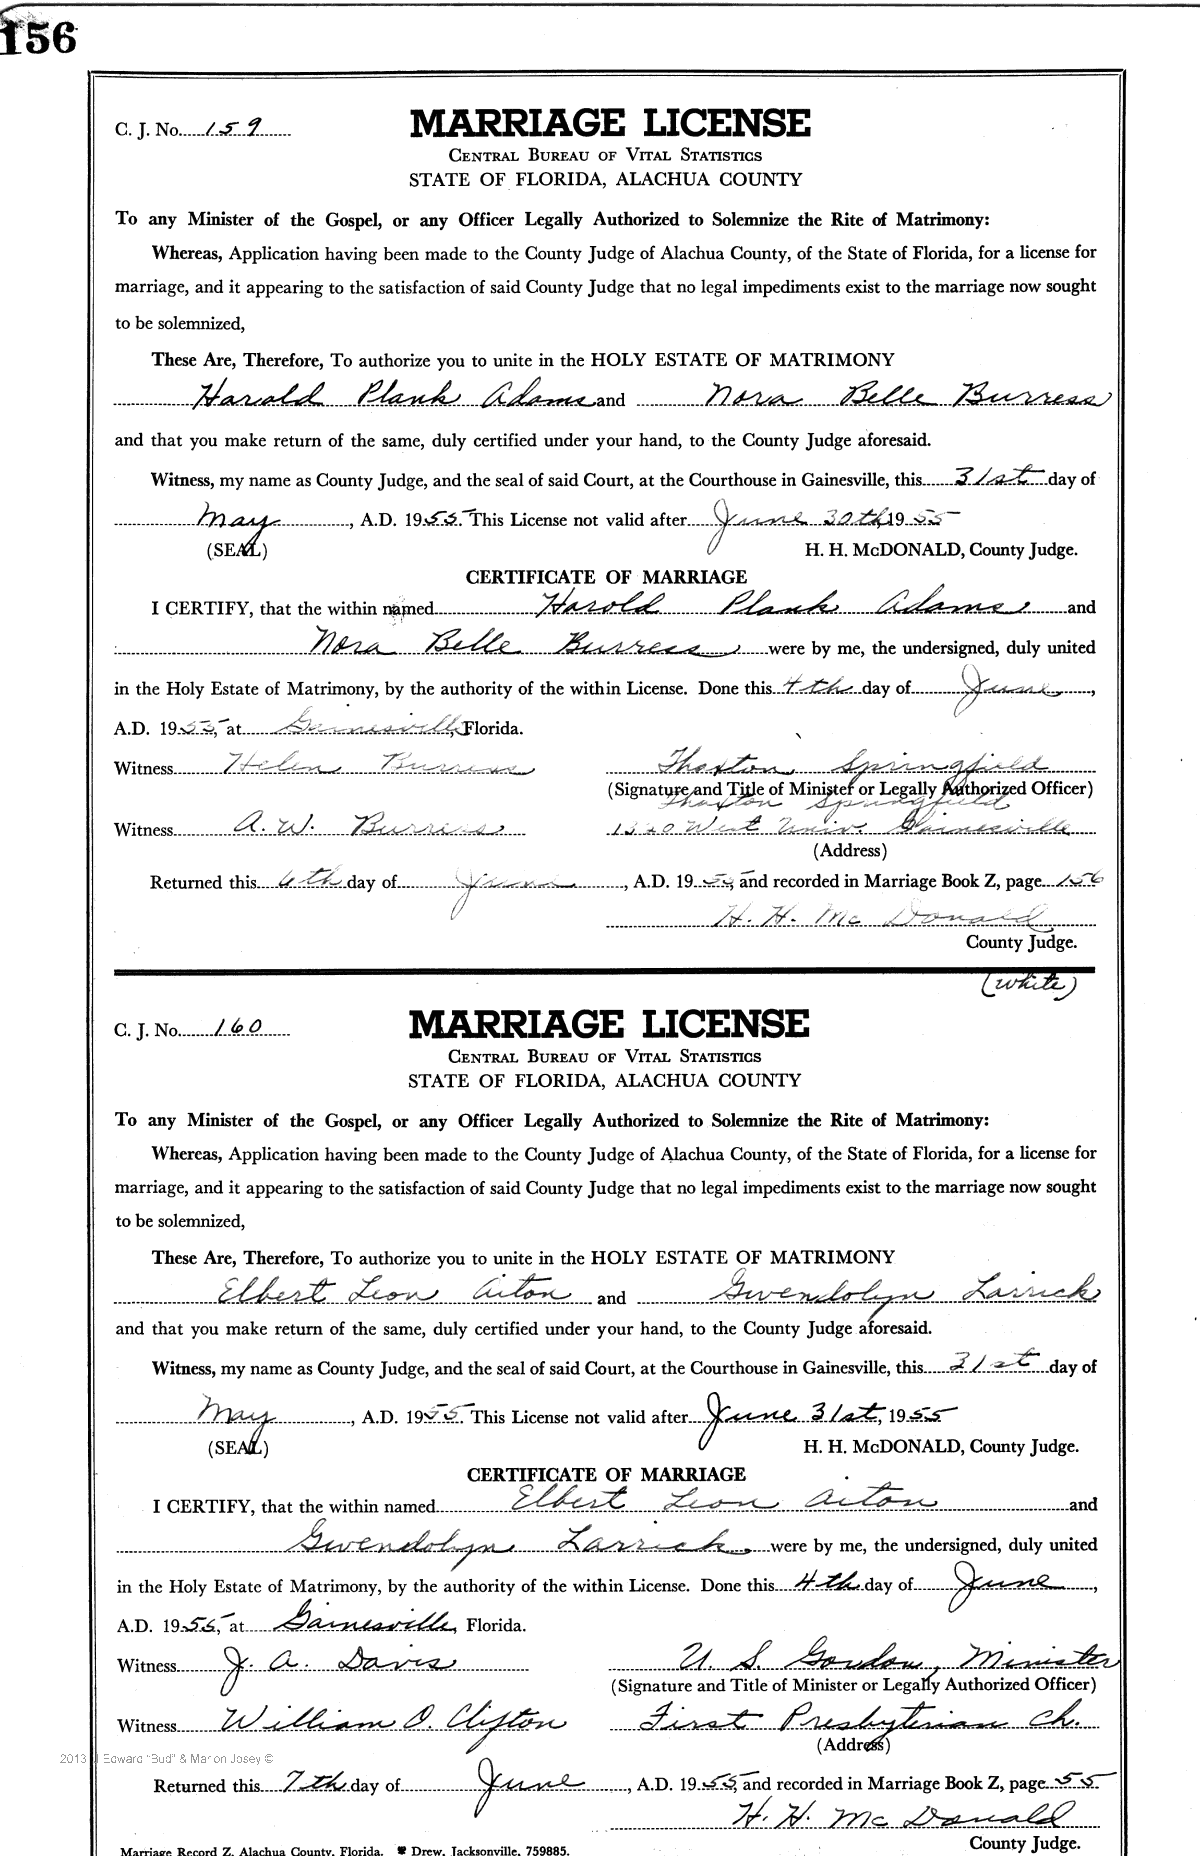 156
C. J. No. 159
MARRIAGE LICENSE
CENTRAL BUREAU OF VITAL STATISTICS
STATE OF FLORIDA, ALACHUA COUNTY
To any Minister of the Gospel, or any Officer Legally Authorized to Solemnize the Rite of Matrimony:
Whereas, Application having been made to the County Judge of Alachua County, of the State of Florida, for a license for
marriage, and it appearing to the satisfaction of said County Judge that no legal impediments exist to the marriage now sought
to be solemnized,
These Are, Therefore, To authorize you to unite in the HOLY ESTATE OF MATRIMONY
Harold Plank Adams and Nora Belle Burress
and that you make return of the same, duly certified under your hand, to the County Judge aforesaid.
Witness, my name as County Judge, and the seal of said Court, at the Courthouse in Gainesville, this 31st day of
May, A.D. 1955. This License not valid after June 30th, 1955
(SEAL) H. H. McDONALD, County Judge.
CERTIFICATE OF MARRIAGE
I CERTIFY, that the within named Harold Plank Adams and
Nora Belle Burress were by me, the undersigned, duly united
in the Holy Estate of Matrimony, by the authority of the within License. Done this 4th day of June,
A.D. 1955, at Gainesville, Florida.
Witness Helen Burress Thaxton Springfield
(Signature and Title of Minister or Legally Authorized Officer)
Thaxton Springfield
Witness A. W. Burress 1320 West Univ. Gainesville
(Address)
Returned this 6th day of June, A.D. 1955, and recorded in Marriage Book Z, page 156
H. H. McDonald
County Judge.
(White)
C. J. No. 160
MARRIAGE LICENSE
CENTRAL BUREAU OF VITAL STATISTICS
STATE OF FLORIDA, ALACHUA COUNTY
To any Minister of the Gospel, or any Officer Legally Authorized to Solemnize the Rite of Matrimony:
Whereas, Application having been made to the County Judge of Alachua County, of the State of Florida, for a license for
marriage, and it appearing to the satisfaction of said County Judge that no legal impediments exist to the marriage now sought
to be solemnized,
These Are, Therefore, To authorize you to unite in the HOLY ESTATE OF MATRIMONY
Elbert Leon Aiton and Gwendolyn Larrick
and that you make return of the same, duly certified under your hand, to the County Judge aforesaid.
Witness, my name as County Judge, and the seal of said Court, at the Courthouse in Gainesville, this 31st day of
May, A.D. 1955. This License not valid after June 31st, 1955
(SEAL) H. H. McDONALD, County Judge.
CERTIFICATE OF MARRIAGE
I CERTIFY, that the within named Elbert Leon Aiton and
Gwendolyn Larrick were by me, the undersigned, duly united
in the Holy Estate of Matrimony, by the authority of the within License. Done this 4th day of June,
A.D. 1955, at Gainesville, Florida.
Witness J. A. Davis U. S. Gordon, Minister
(Signature and Title of Minister or Legally Authorized Officer)
Witness William O. Clifton First Presbyterian Ch.
(Address)
2013 J Edward "Bud" & Marion Josey ©
Returned this 7th day of June, A.D. 1955, and recorded in Marriage Book Z, page 55
H. H. McDonald
County Judge.
Marriage Record Z, Alachua County, Florida. Drew, Jacksonville, 759885.